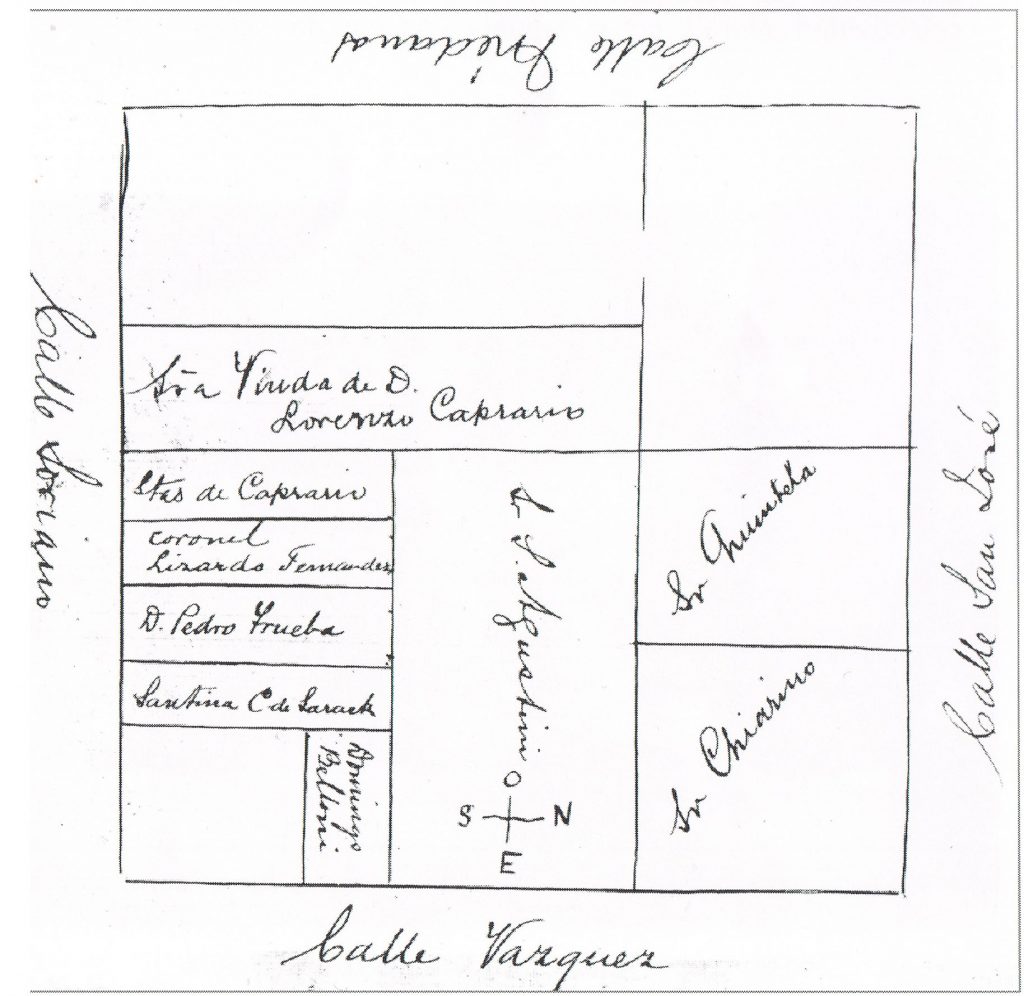 Calle Médanos
Calle Soriano
Sra Viuda de D.
Lorenzo Caprario
Stas de Caprario
coronel
Lizardo Fernandez
D. Pedro Trueba
Santina C de Sarack
Domingo
Belloni
Sr S. Agustini
O
S N
E
Sr Quintela
Sr Chiarino
Calle San José
Calle Vazquez